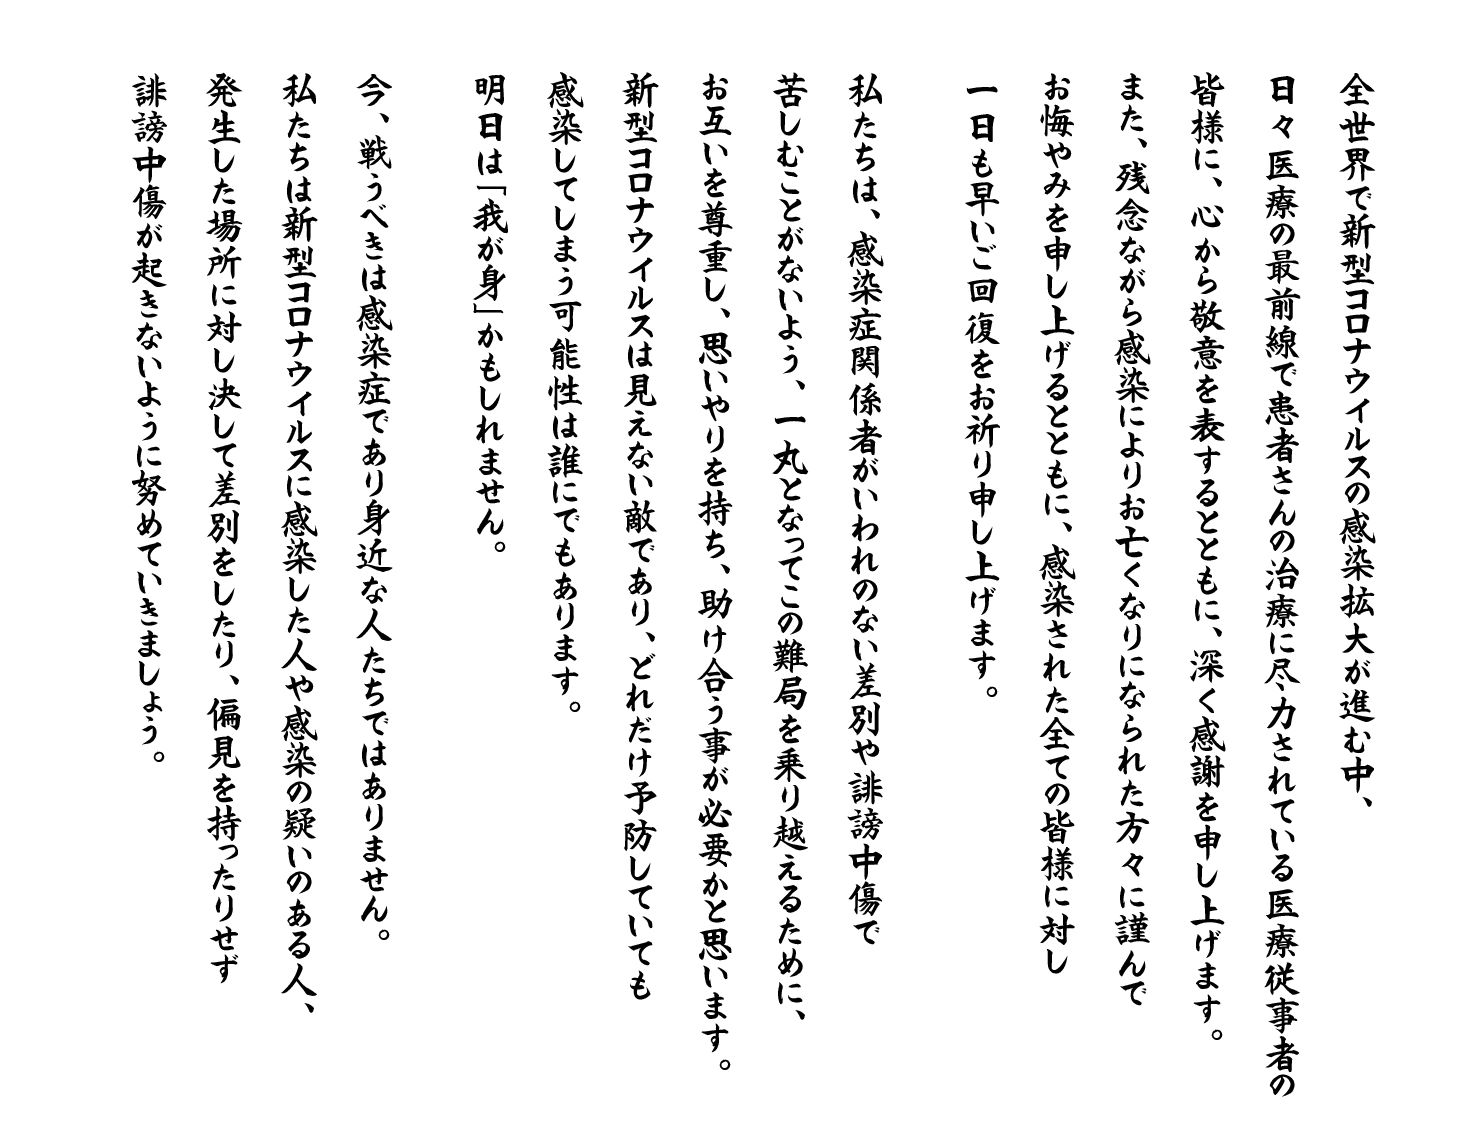 全世界で新型コロナウイルスの感染拡大が進む中、
日々医療の最前線で患者さんの治療に尽力されている医療従事者の
皆様に、心から敬意を表するとともに、深く感謝を申し上げます。
また、残念ながら感染によりお亡くなりになられた方々に謹んで
お悔やみを申し上げるとともに、感染された全ての皆様に対し
一日も早いご回復をお祈り申し上げます。
私たちは、感染症関係者がいわれのない差別や誹謗中傷で
苦しむことがないよう、一丸となってこの難局を乗り越えるために、
お互いを尊重し、思いやりを持ち、助け合う事が必要かと思います。
新型コロナウイルスは見えない敵であり、どれだけ予防していても
感染してしまう可能性は誰にでもあります。
明日は「我が身」かもしれません。
今、戦うべきは感染症であり身近な人たちではありません。
私たちは新型コロナウイルスに感染した人や感染の疑いのある人、
発生した場所に対し決して差別をしたり、偏見を持ったりせず
誹謗中傷が起きないように努めていきましょう。